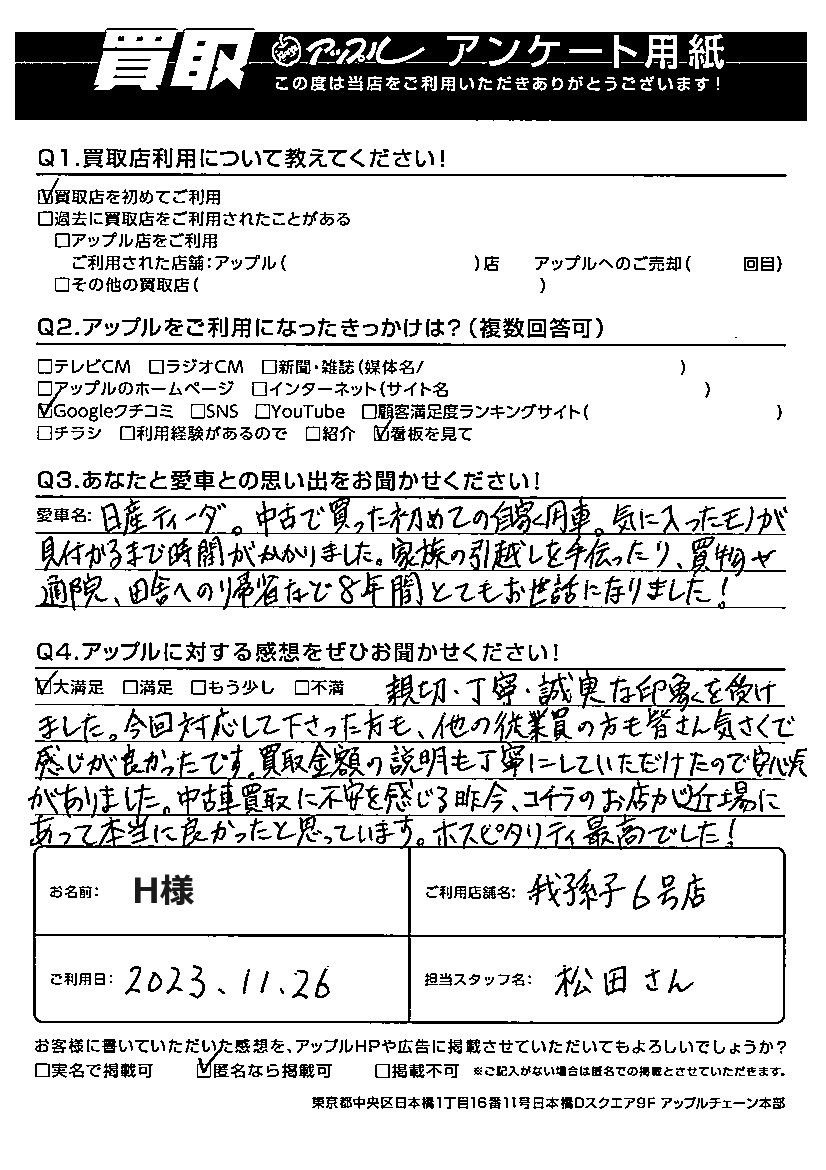 買取 アップル アンケート用紙
この度は当店をご利用いただきありがとうございます!
Q1.買取店利用について教えてください!
☑買取店を初めてご利用
□過去に買取店をご利用されたことがある
□アップル店をご利用
ご利用された店舗:アップル( )店 アップルへのご売却( 回目)
□その他の買取店( )
Q2.アップルをご利用になったきっかけは?(複数回答可)
□テレビCM □ラジオCM □新聞・雑誌(媒体名/ )
□アップルのホームページ □インターネット(サイト名 )
☑Googleクチコミ □SNS □YouTube □顧客満足度ランキングサイト( )
□チラシ □利用経験があるので □紹介 ☑看板を見て
Q3.あなたと愛車との思い出をお聞かせください!
愛車名: 日産ティーダ。中古で買った初めての自家用車。気に入ったモノが
見付かるまで時間がかかりました。家族の引越しを手伝ったり、買物や
通院、田舎への帰省など8年間とてもお世話になりました!
Q4.アップルに対する感想をぜひお聞かせください!
☑大満足 □満足 □もう少し □不満 親切・丁寧・誠実な印象を受け
ました。今回対応して下さった方も、他の従業員の方も皆さん気さくで
感じが良かったです。買取金額の説明も丁寧にしていただけたので安心感
がありました。中古車買取に不安を感じる昨今、コチラのお店が近場に
あって本当に良かったと思っています。ホスピタリティ最高でした!
お名前: H様 ご利用店舗名: 我孫子6号店
ご利用日: 2023.11.26 担当スタッフ名: 松田さん
お客様に書いていただいた感想を、アップルHPや広告に掲載させていただいてもよろしいでしょうか?
□実名で掲載可 ☑匿名なら掲載可 □掲載不可 ※ご記入がない場合は匿名での掲載とさせていただきます。
東京都中央区日本橋1丁目16番11号日本橋Dスクエア9F アップルチェーン本部